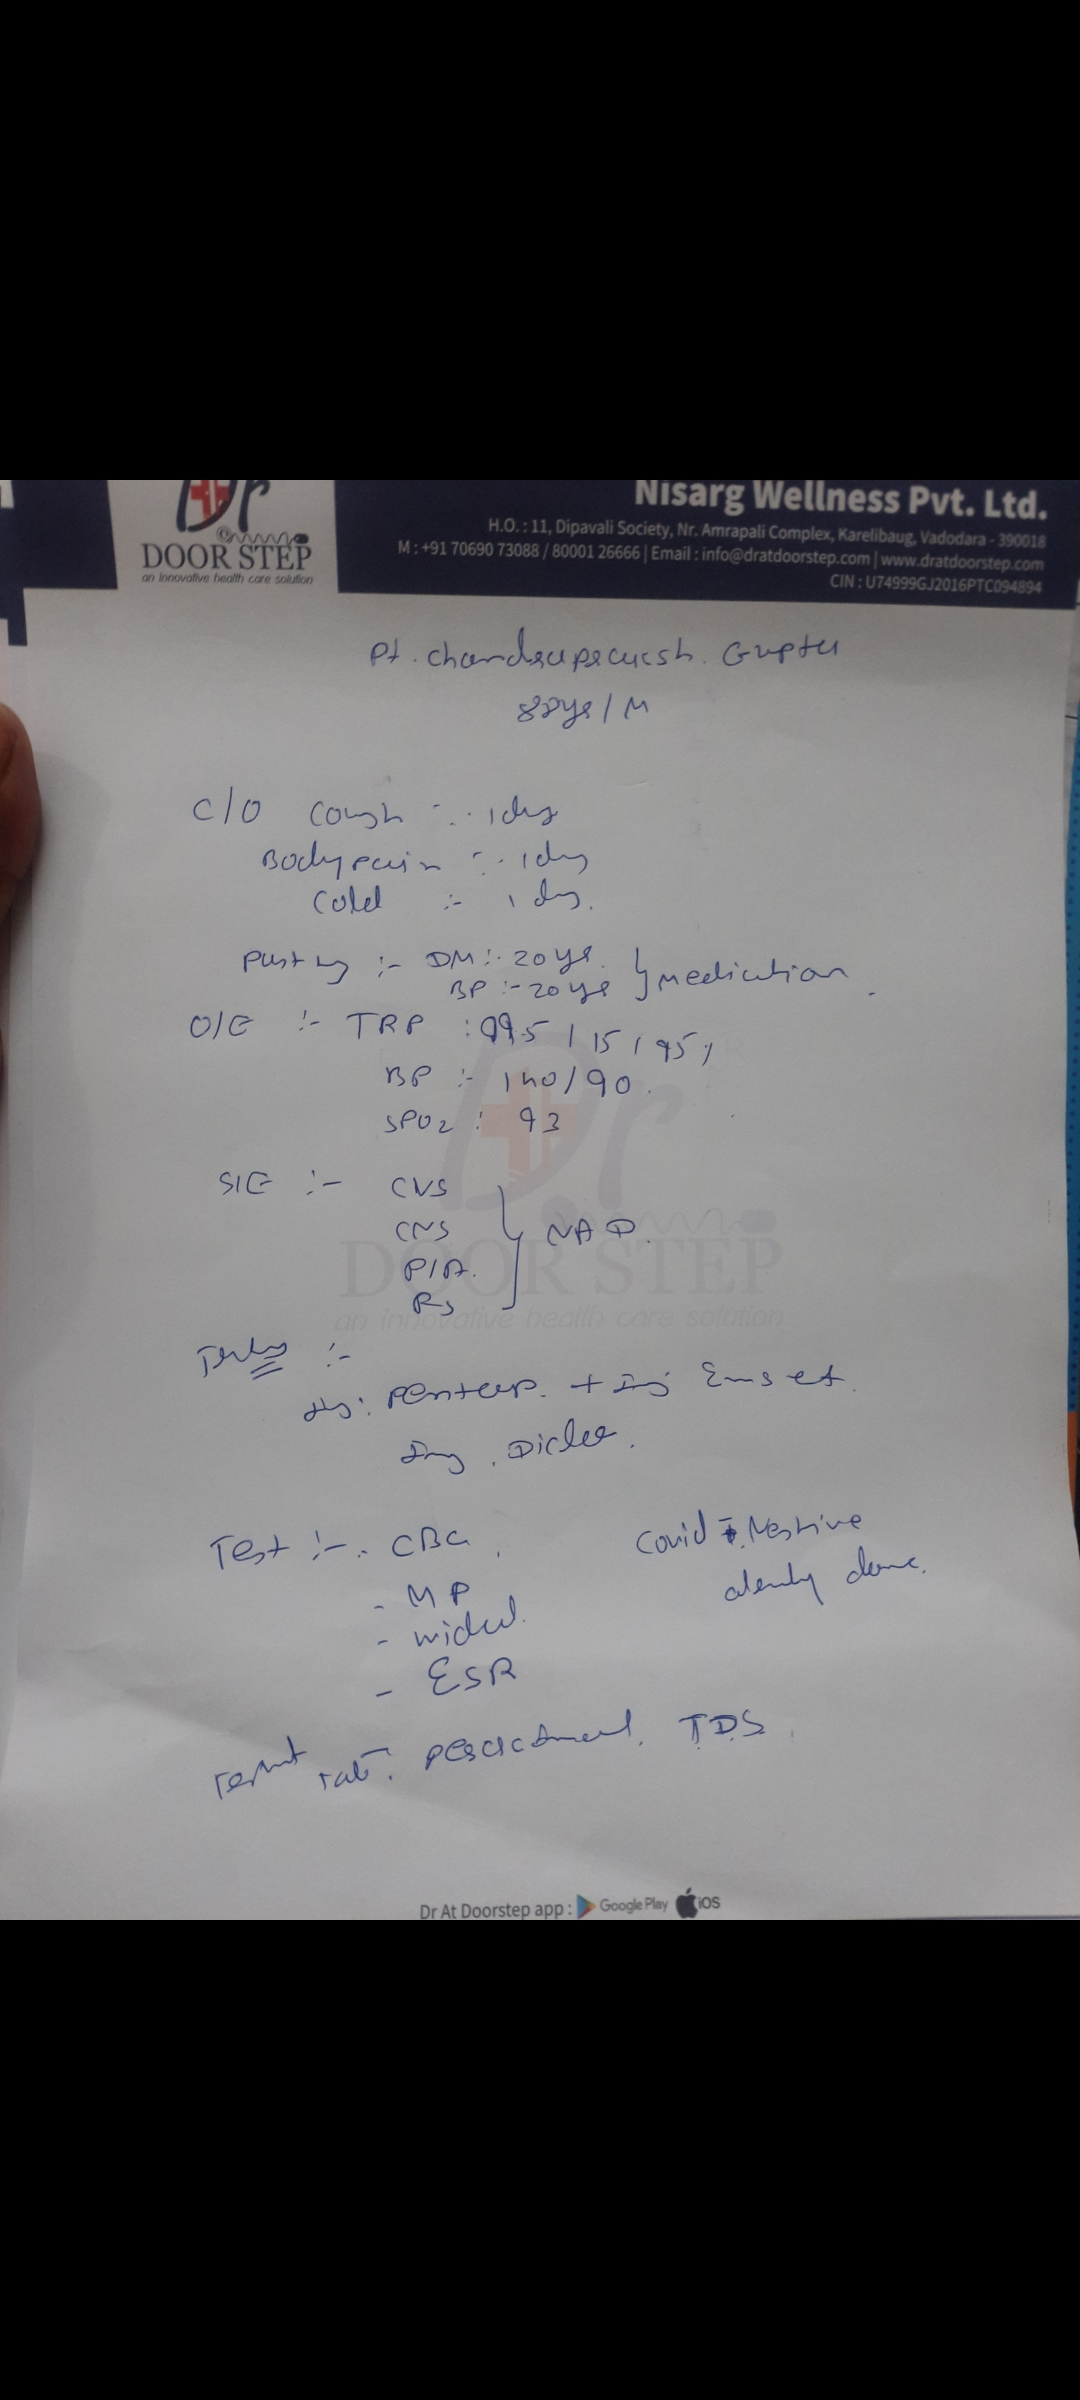 Dr
@
DOOR STEP
an innovative health care solution
Nisarg Wellness Pvt. Ltd.
H.O. : 11, Dipavali Society, Nr. Amrapali Complex, Karelibaug, Vadodara - 390018
M : +91 70690 73088 / 80001 26666 | Email : info@dratdoorstep.com | www.dratdoorstep.com
CIN : U74999GJ2016PTC094894
Pt. Chandraprakash. Gupta
/ M
C/O Cough :- 1 day
Bodypain :- 1 day
Cold :- 1 day.
Past :- DM :- 20 yr.
BP :- 20 yr } Medication.
O/E :- TRP : 99.5 / 15 / 95
BP :- 140/90.
SPO2 : 93
S/E :- CVS
CNS } NAD.
P/A.
RS
Dr
DOOR STEP
an innovative health care solution
:-
Inj. Pantop. + Inj Emset.
Inj. Diclo.
Test :- - CBC.
- MP
- widal.
- ESR
Covid Negtive
already done.
Tab. Paracetamol. T.D.S.
Dr At Doorstep app : Google Play iOS